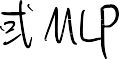 式MLP